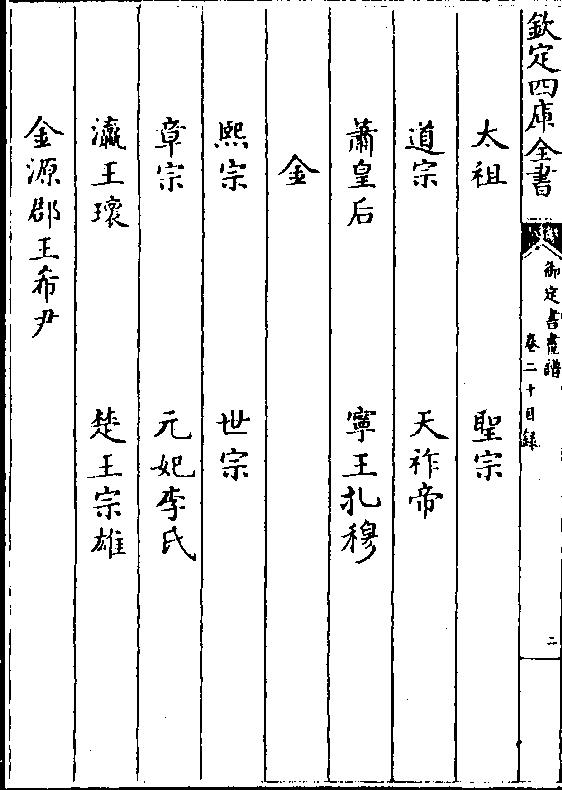 欽定四庫全書
御定書畫譜
卷二十目錄
二
太祖 聖宗
道宗 天祚帝
蕭皇后 寧王扎穆
金
熙宗 世宗
章宗 元妃李氏
瀛王瓌 楚王宗雄
金源郡王希尹